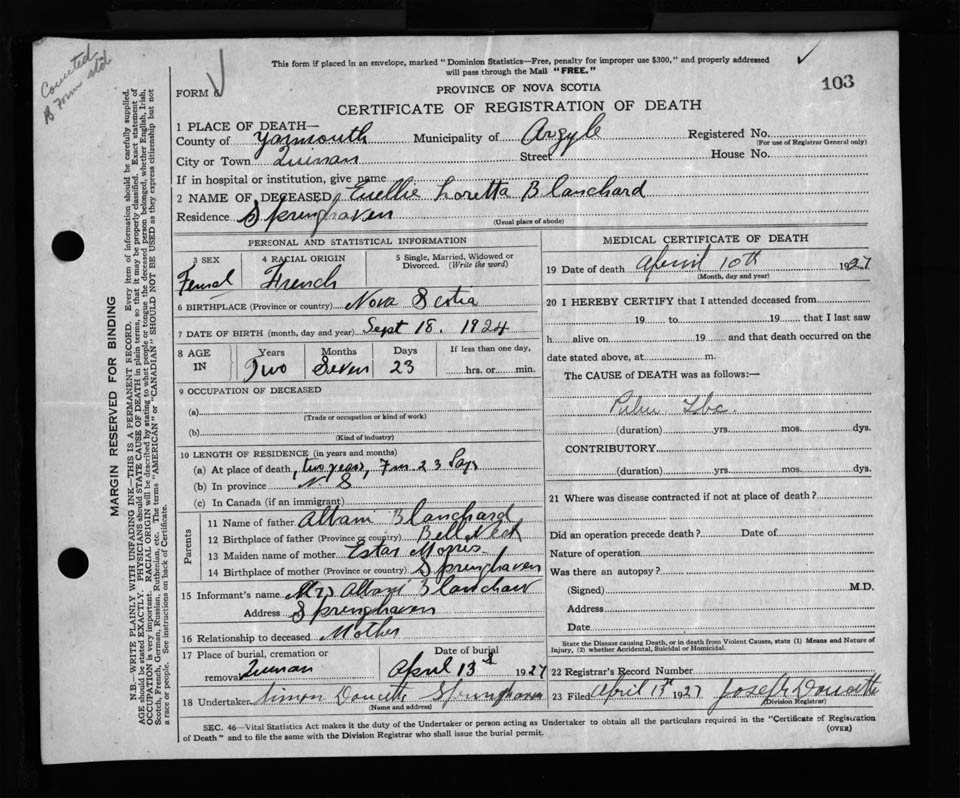 Counted
This form if placed in an envelope, marked "Dominion Statistics—Free, penalty for improper use $300," and properly addressed
will pass through the Mail "FREE."
103
FORM 6
PROVINCE OF NOVA SCOTIA
CERTIFICATE OF REGISTRATION OF DEATH
1 PLACE OF DEATH—
County of Yarmouth Municipality of Argyle Registered No.
(For use of Registrar General only)
City or Town Quinan Street House No.
If in hospital or institution, give name
2 NAME OF DECEASED Euellie Loretta Blanchard
Residence Springhaven
(Usual place of abode)
PERSONAL AND STATISTICAL INFORMATION
3 SEX 4 RACIAL ORIGIN 5 Single, Married, Widowed or Divorced. (Write the word)
Femal French
6 BIRTHPLACE (Province or country) Nova Scotia
7 DATE OF BIRTH (month, day and year) Sept 18. 1924
8 AGE IN Years Months Days If less than one day,
Two Seven 23 hrs. or min.
9 OCCUPATION OF DECEASED
(a)
(Trade or occupation or kind of work)
(b)
(Kind of industry)
10 LENGTH OF RESIDENCE (in years and months)
(a) At place of death, two years, 7 m 23 Days
(b) In province N S
(c) In Canada (if an immigrant)
Parents
11 Name of father Albani Blanchard
12 Birthplace of father (Province or country) Bell Neck
13 Maiden name of mother Estar Moores
14 Birthplace of mother (Province or country) Springhaven
15 Informant's name Mrs Albani Blanchar
Address Springhaven
16 Relationship to deceased Mother
17 Place of burial, cremation or removal Quinan
Date of burial
April 13 1927
18 Undertaker Simon Doucette Springhaven
(Name and address)
MEDICAL CERTIFICATE OF DEATH
19 Date of death April 10th 1927
(Month, day and year)
20 I HEREBY CERTIFY that I attended deceased from
19 to 19 that I last saw
h alive on 19 and that death occurred on the
date stated above, at m.
The CAUSE of DEATH was as follows:—
Pulm Tbc.
(duration) yrs. mos. dys.
CONTRIBUTORY
(duration) yrs. mos. dys.
21 Where was disease contracted if not at place of death?
Did an operation precede death? Date of
Nature of operation
Was there an autopsy?
(Signed) M.D.
Address
Date
State the Disease causing Death, or in death from Violent Causes, state (1) Means and Nature of
Injury, (2) whether Accidental, Suicidal or Homicidal.
22 Registrar's Record Number
23 Filed April 13th 1927 Joseph Doucette
(Division Registrar)
SEC. 46—Vital Statistics Act makes it the duty of the Undertaker or Person acting as Undertaker to obtain all the particulars required in the "Certificate of Registration
of Death" and to file the same with the Division Registrar who shall issue the burial permit.
(OVER)
MARGIN RESERVED FOR BINDING
N.B.—WRITE PLAINLY WITH UNFADING INK—THIS IS A PERMANENT RECORD. Every item of information should be carefully supplied.
AGE should be stated EXACTLY. PHYSICIANS should STATE CAUSE OF DEATH in plain terms, so that it may be properly classified. Exact statement of
OCCUPATION is very important. RACIAL ORIGIN will be described by stating to what people or tongue the deceased person belonged, whether English, Irish,
Scotch, French, German, Russian, Ruthenian, etc. The terms "AMERICAN" or "CANADIAN" SHOULD NOT BE USED as they express citizenship but not
a race or people. See instructions on back of Certificate.